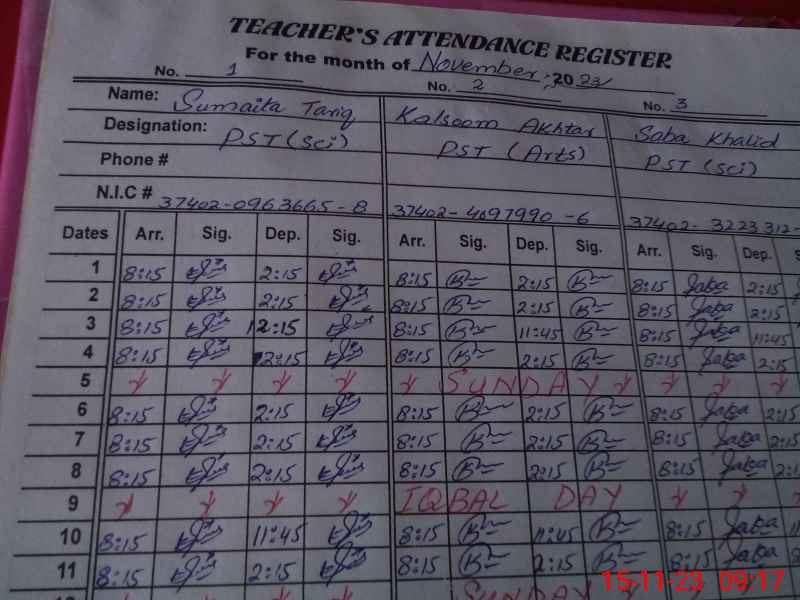 TEACHER'S ATTENDANCE REGISTER
For the month of November, 2023
No. 1 No. 2 No. 3
Name: Sumaita Tariq Kalsoom Akhtar Saba Khalid
Designation: PST (Sci) PST (Arts) PST (Sci)
Phone #
N.I.C # 37402-0963665-8 37402-4097990-6 37402-3223312-
Dates Arr. Sig. Dep. Sig. Arr. Sig. Dep. Sig. Arr. Sig. Dep. S
1 8:15 2:15 8:15 2:15 8:15 Saba 2:15
2 8:15 2:15 8:15 2:15 8:15 Saba 2:15
3 8:15 12:15 8:15 11:45 8:15 Saba 11:45
4 8:15 2:15 8:15 2:15 8:15 Saba 2:15
5 SUNDAY
6 8:15 2:15 8:15 2:15 8:15 Saba 2:15
7 8:15 2:15 8:15 2:15 8:15 Saba 2:15
8 8:15 2:15 8:15 2:15 8:15 Saba 2:1
9 IQBAL DAY
10 8:15 11:45 8:15 11:45 8:15 Saba 11
11 8:15 2:15 8:15 2:15 8:15 Saba
SUNDAY
15-11-23 09:17